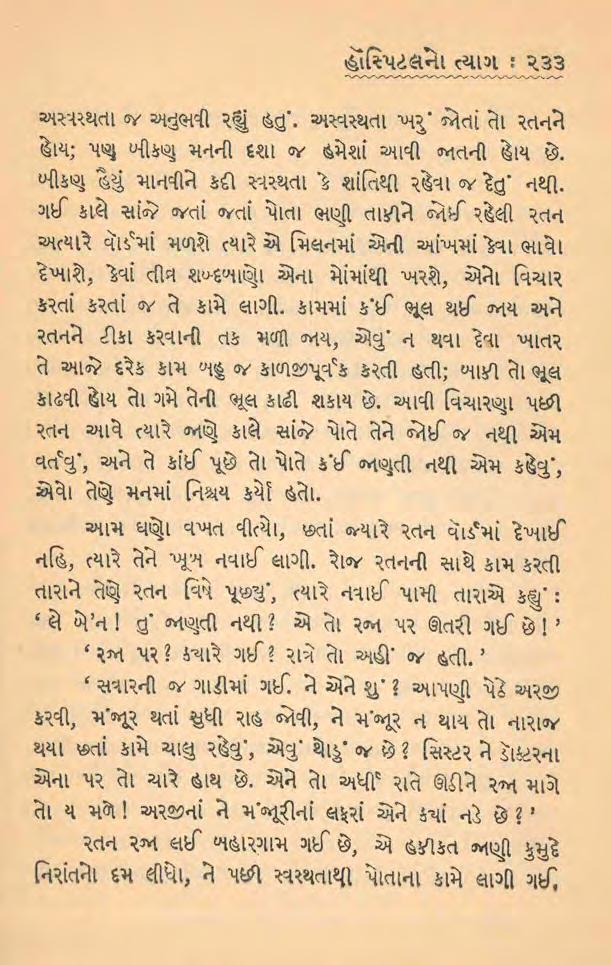 હૉસ્પિટલનો ત્યાગ : ૨૩૩
અસ્વસ્થતા જ અનુભવી રહ્યું હતું. અસ્વસ્થતા ખરું જોતાં તો રતનને
હોય; પણ બીકણ મનની દશા જ હમેશાં આવી જાતની હોય છે.
બીકણ હૈયું માનવીને કદી સ્વસ્થતા કે શાંતિથી રહેવા જ દેતું નથી.
ગઈ કાલે સાંજે જતાં જતાં પોતા ભણી તાકીને જોઈ રહેલી રતન
અત્યારે વૉર્ડમાં મળશે ત્યારે એ મિલનમાં એની આંખમાં કેવા ભાવો
દેખાશે, કેવાં તીવ્ર શબ્દબાણો એના મોંમાંથી ખરશે, એનો વિચાર
કરતાં કરતાં જ તે કામે લાગી. કામમાં કંઈ ભૂલ થઈ જાય અને
રતનને ટીકા કરવાની તક મળી જાય, એવું ન થવા દેવા ખાતર
તે આજે દરેક કામ બહુ જ કાળજીપૂર્વક કરતી હતી; બાકી તો ભૂલ
કાઢવી હોય તો ગમે તેની ભૂલ કાઢી શકાય છે. આવી વિચારણા પછી
રતન આવે ત્યારે જાણે કાલે સાંજે પોતે તેને જોઈ જ નથી એમ
વર્તવું, અને તે કાંઈ પૂછે તો પોતે કંઈ જાણતી નથી એમ કહેવું,
એવો તેણે મનમાં નિશ્ચય કર્યો હતો.
આમ ઘણો વખત વીત્યો, છતાં જ્યારે રતન વૉર્ડમાં દેખાઈ
નહિ, ત્યારે તેને ખૂબ નવાઈ લાગી. રોજ રતનની સાથે કામ કરતી
તારાને તેણે રતન વિષે પૂછ્યું, ત્યારે નવાઈ પામી તારાએ કહ્યું :
‘ લે બે’ન ! તું જાણતી નથી ? એ તો રજા પર ઊતરી ગઈ છે ! ’
‘ રજા પર ? ક્યારે ગઈ ? રાત્રે તો અહીં જ હતી. ’
‘ સવારની જ ગાડીમાં ગઈ. ને એને શું ? આપણી પેઠે અરજી
કરવી, મંજૂર થતાં સુધી રાહ જોવી, ને મંજૂર ન થાય તો નારાજ
થયા છતાં કામે ચાલુ રહેવું, એવું થોડું જ છે ? સિસ્ટર ને ડૉક્ટરના
એના પર તો ચારે હાથ છે. એને તો અર્ધી રાતે ઊઠીને રજા માગે
તો ય મળે ! અરજીનાં ને મંજૂરીનાં લફરાં એને ક્યાં નડે છે ? ’
રતન રજા લઈ બહારગામ ગઈ છે, એ હકીકત જાણી કુમુદે
નિરાંતનો દમ લીધો, ને પછી સ્વસ્થતાથી પોતાના કામે લાગી ગઈ.